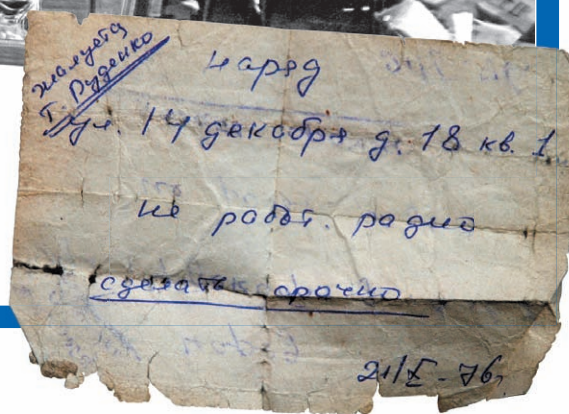 жалуется
т. Руденко
Наряд
ул. 14 декабря д. 18 кв. 1
не работ. радио
сделать срочно
21/X-76г.